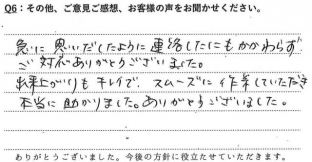 Q6：その他、ご意見ご感想、お客様の声をお聞かせください。
急に思いだしたように連絡したにもかかわらず
ご対応ありがとうございました。
出来上がりもキレイで、スムーズに作業していただき
本当に助かりました。ありがとうございました。
ありがとうございました。今後の方針に役立たせていただきます。